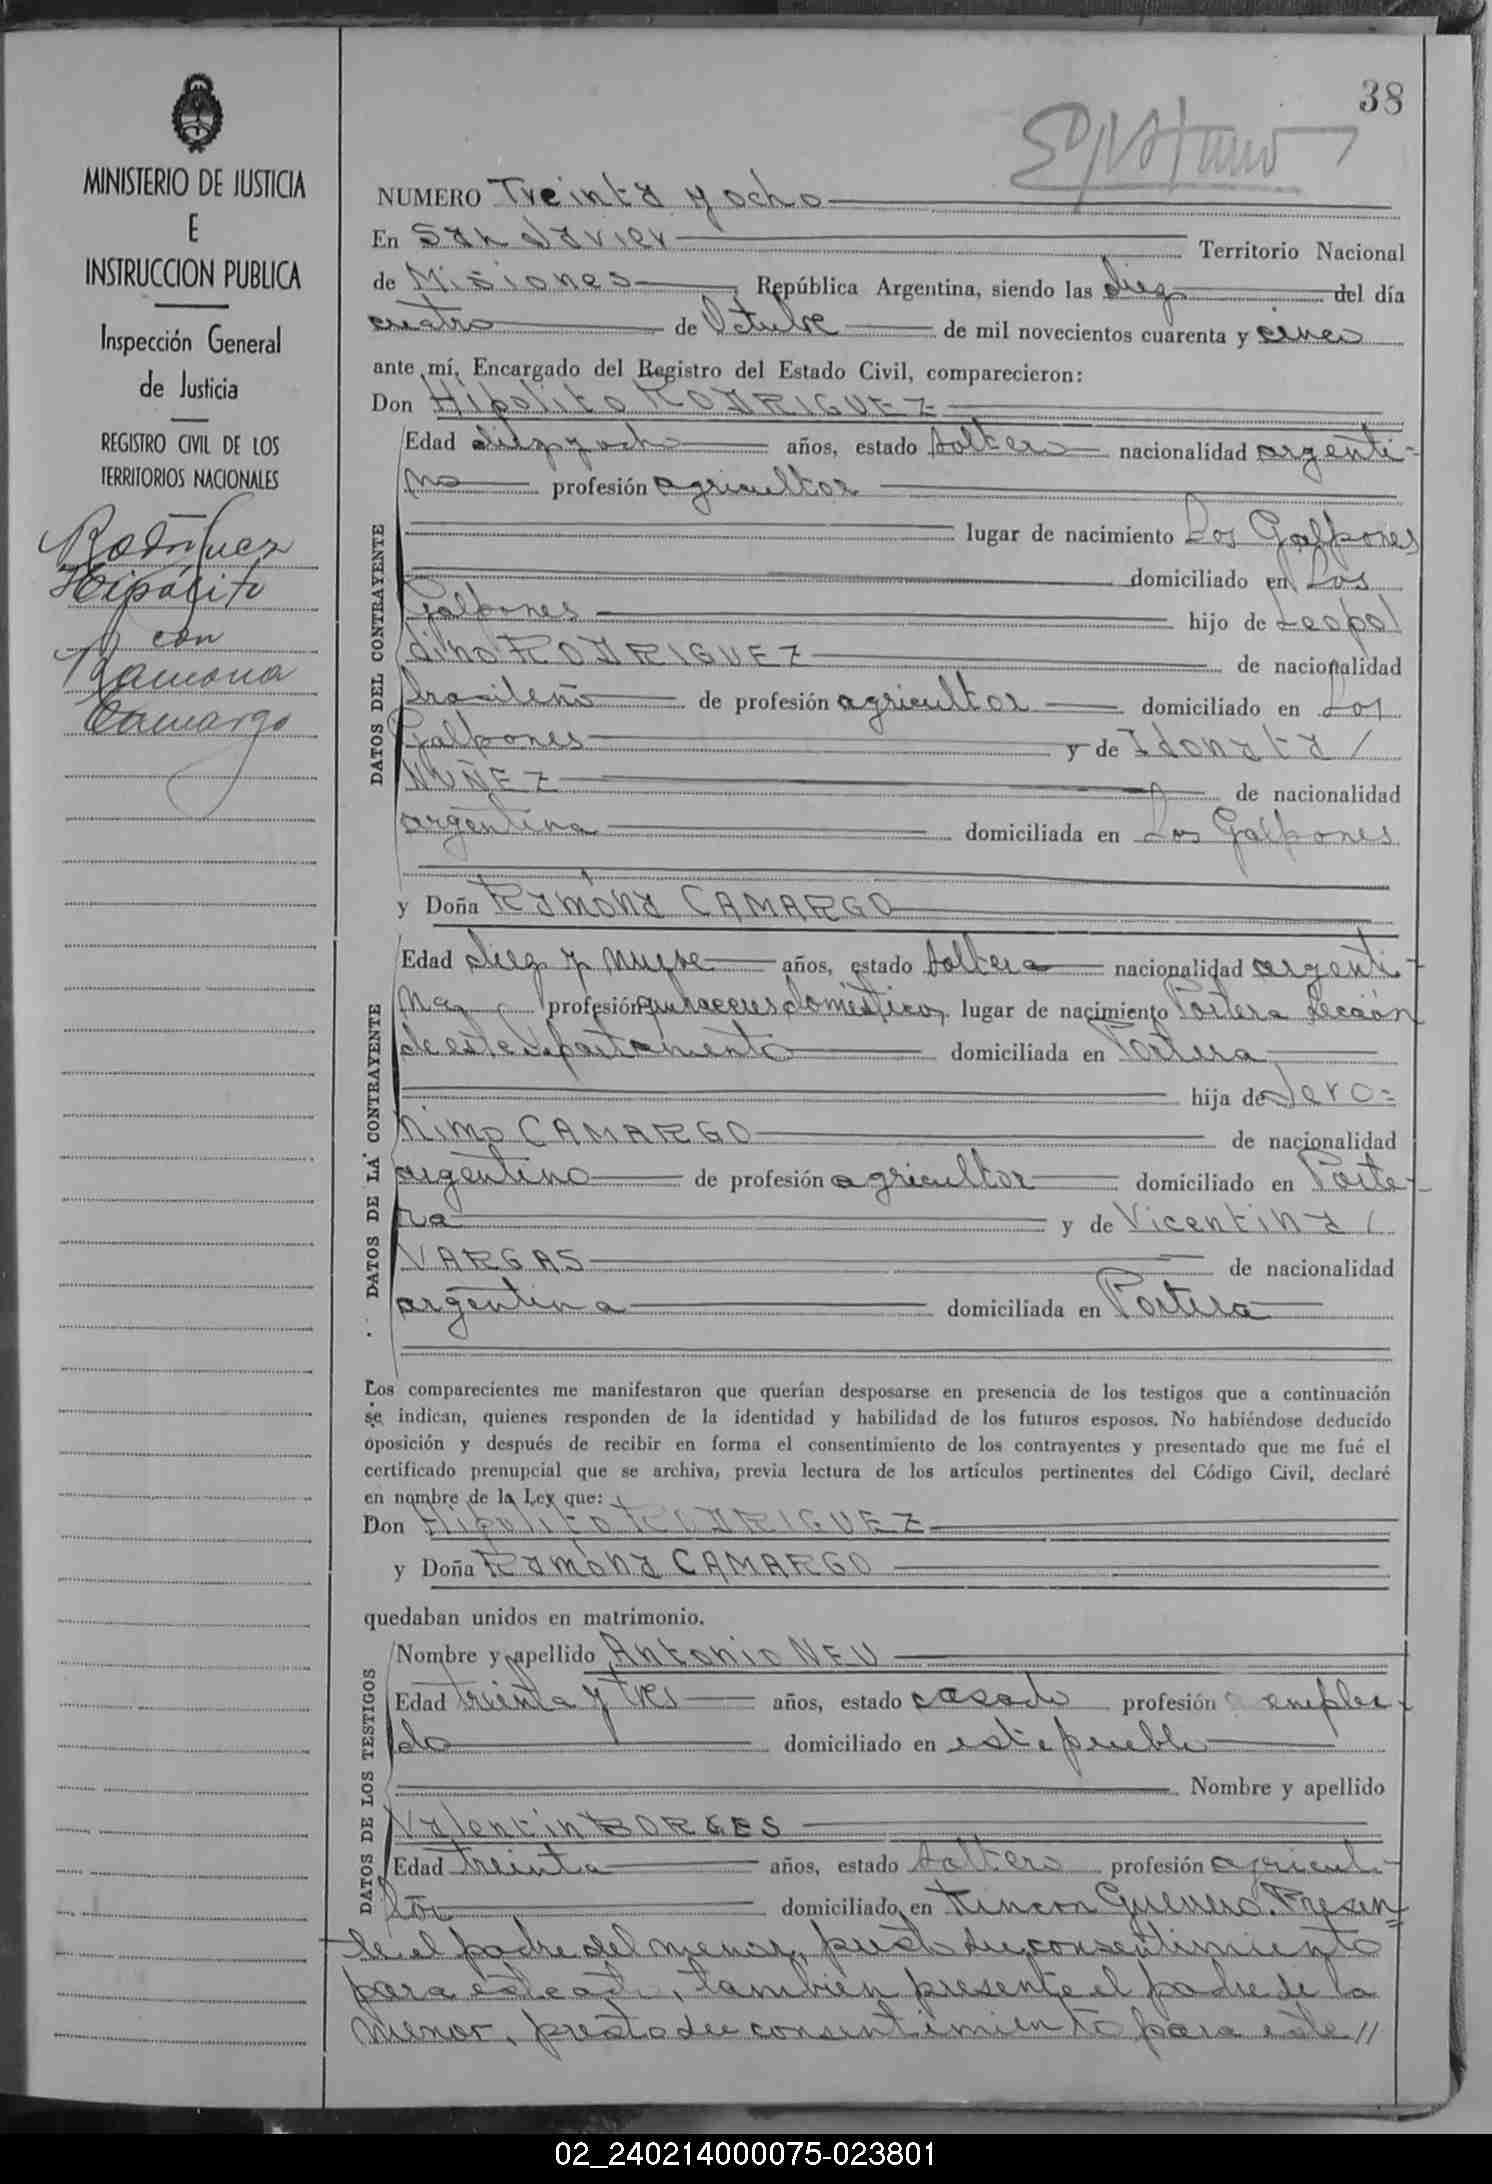 38
MINISTERIO DE JUSTICIA
E
INSTRUCCION PUBLICA
Inspección General
de Justicia
REGISTRO CIVIL DE LOS
TERRITORIOS NACIONALES
Rodríguez
Hipólito
con
Ramona
Camargo
NUMERO Treinta y ocho
En San Javier Territorio Nacional
de Misiones República Argentina, siendo las diez del día
cuatro de Octubre de mil novecientos cuarenta y cinco
ante mí, Encargado del Registro del Estado Civil, comparecieron:
Don Hipólito RODRIGUEZ
DATOS DEL CONTRAYENTE
Edad diez y ocho años, estado soltero nacionalidad argenti-
no profesión agricultor
lugar de nacimiento Los Galpones
domiciliado en Los
Galpones hijo de Leopol
dino RODRIGUEZ de nacionalidad
brasileño de profesión agricultor domiciliado en Los
Galpones y de Idonata
NUÑEZ de nacionalidad
argentina domiciliada en Los Galpones
y Doña Ramóna CAMARGO
DATOS DE LA CONTRAYENTE
Edad diez y nueve años, estado soltera nacionalidad argenti-
na, profesión quehaceres domésticos, lugar de nacimiento Portera sección
de este departamento domiciliada en Portera
hija de Jero=
nimo CAMARGO de nacionalidad
argentino de profesión agricultor domiciliado en Porte-
ra y de Vicentina
VARGAS de nacionalidad
argentina domiciliada en Portera
Los comparecientes me manifestaron que querían desposarse en presencia de los testigos que a continuación
se indican, quienes responden de la identidad y habilidad de los futuros esposos. No habiéndose deducido
oposición y después de recibir en forma el consentimiento de los contrayentes y presentado que me fué el
certificado prenupcial que se archiva, previa lectura de los artículos pertinentes del Código Civil, declaré
en nombre de la Ley que:
Don Hipólito RODRIGUEZ
y Doña Ramóna CAMARGO
quedaban unidos en matrimonio.
DATOS DE LOS TESTIGOS
Nombre y apellido Antonio NEU
Edad treinta y tres años, estado casado profesión emplea-
do domiciliado en este pueblo
Nombre y apellido
Valentin BORGES
Edad treinta años, estado soltero profesión agricul-
tor domiciliado en Rincon Guerrero. Presen=
te el padre del menor, presta su consentimiento
para este acto, también presente el padre de la
menor, presta su consentimiento para este //
02_240214000075-023801